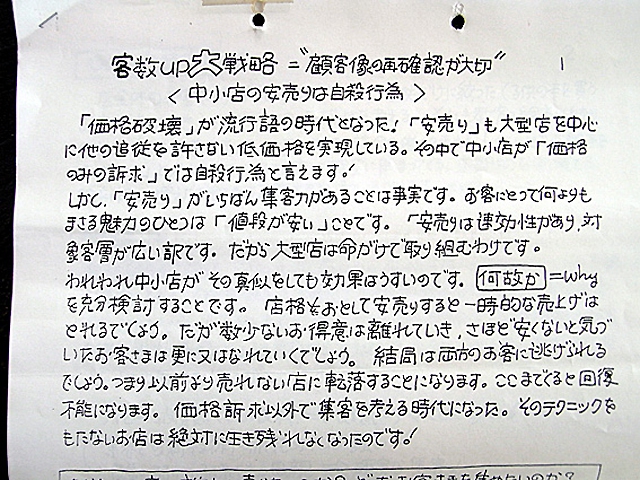 客数UP大戦略="顧客像の再確認が大切" 1
<中小店の安売りは自殺行為>
「価格破壊」が流行語の時代となった!「安売り」も大型店を中心
に他の追従を許さない低価格を実現している。その中で中小店が「価格
のみの訴求」では自殺行為と言えます!
しかし、「安売り」がいちばん集客力があることは事実です。お客にとって何よりも
まさる魅力のひとつは「値段が安い」ことです。「安売りは速効性があり、対
象客層が広い訳です。だから大型店は命がけで取り組むわけです。
われわれ中小店がその真似をしても効果はうすいのです。何故か=Why
を充分検討することです。店格をおとして安売りすると一時的な売上げは
とれるでしょう。だが数少ないお得意は離れていき、さほど安くないと気づ
いたお客さまは更に又はなれていくでしょう。結局は両方のお客に逃げられる
でしょう。つまり以前より売れない店に転落することになります。ここまでくると回復
不能になります。価格訴求以外で集客を考える時代になった。そのテクニックを
もたないお店は絶対に生き残れなくなったのです!